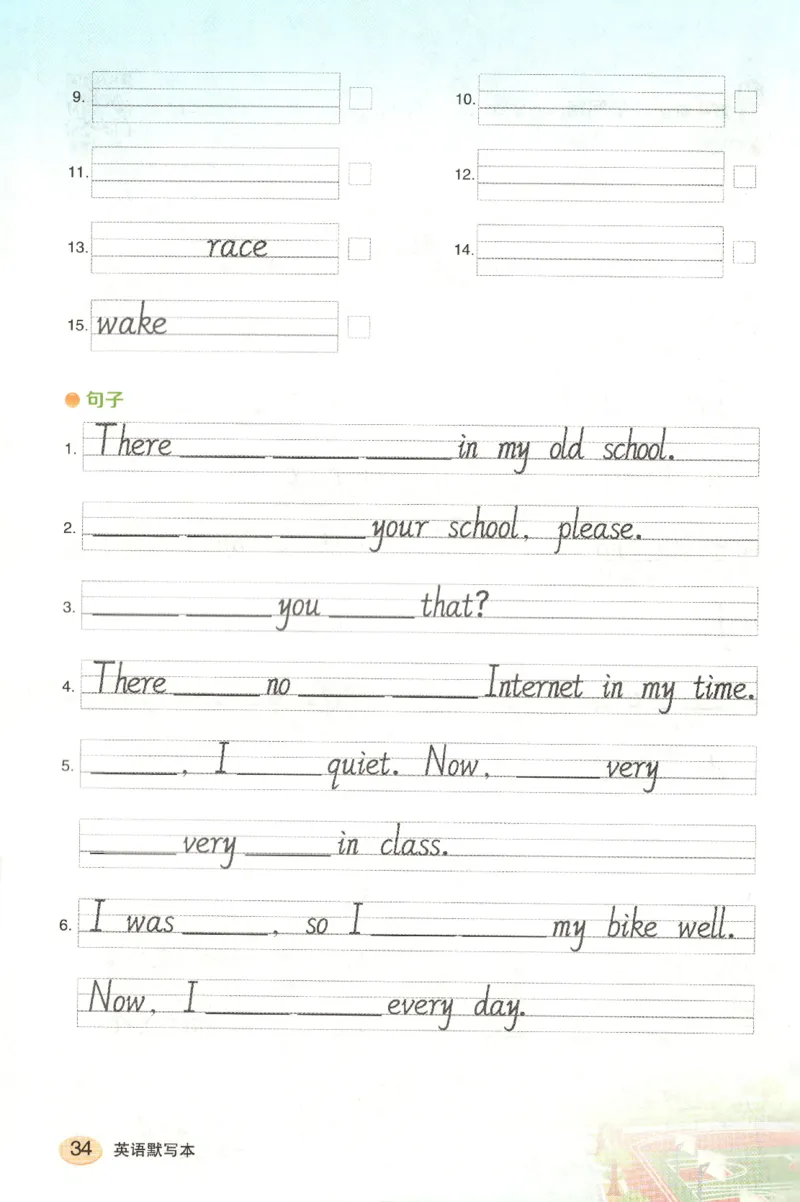 9.
10.
11.
12.
13. race
14.
15. wake
句子
1. There ______ ______ ______ in my old school.
2. ______ ______ ______ your school, please.
3. ______ ______ you ______ that?
4. There ______ no ______ ______ Internet in my time.
5. ______, I ______ quiet. Now, ______ very
______ very ______ in class.
6. I was ______, so I ______ ______ my bike well.
Now, I ______ ______ every day.
34 英语默写本